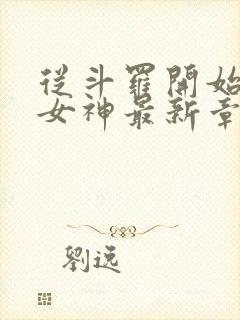 從斗羅開始
女神最新章
劉逸